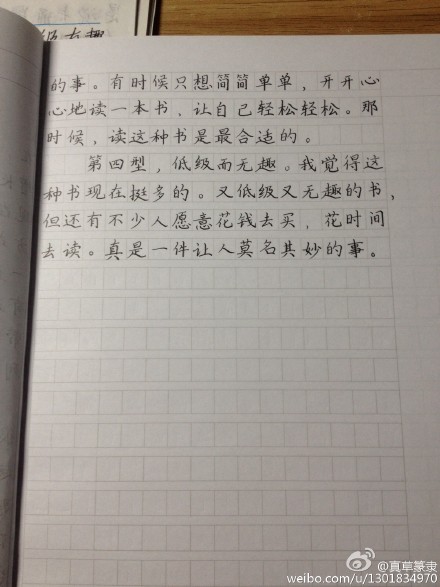 级有趣
的事。有时候只想简简单单，开开心
心地读一本书，让自己轻松轻松。那
时候，读这种书是最合适的。
第四型，低级而无趣。我觉得这
种书现在挺多的。又低级又无趣的书，
但还有不少人愿意花钱去买，花时间
去读。真是一件让人莫名其妙的事。
@真草篆隶
weibo.com/u/1301834970